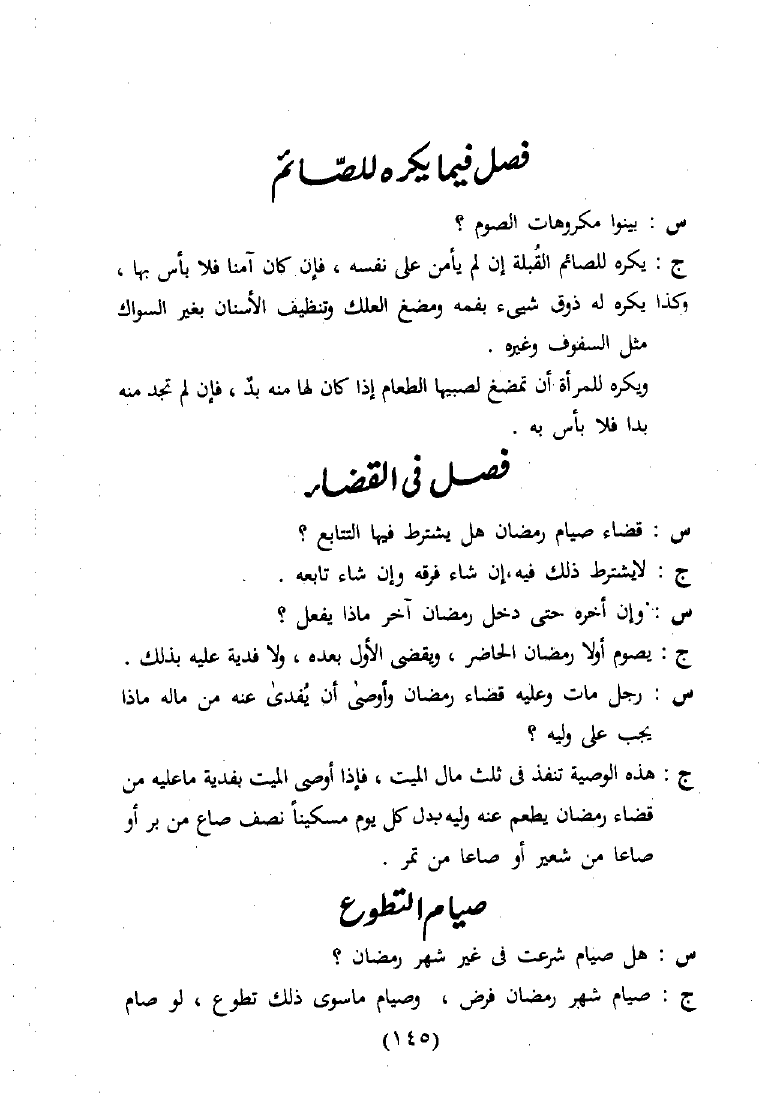 فصل فيما يكره للصّائم
س : بينوا مكروهات الصوم ؟
ج : يكره للصائم القُبلة إن لم يأمن على نفسه ، فإن كان آمنا فلا بأس بها ،
وكذا يكره له ذوق شيىء بفمه ومضغ العلك وتنظيف الأسنان بغير السواك
مثل السفوف وغيره .
ويكره للمرأة أن تمضغ لصبيها الطعام إذا كان لها منه بدٌ ، فإن لم تجد منه
بدا فلا بأس به .
فصل فى القضاء
س : قضاء صيام رمضان هل يشترط فيها التتابع ؟
ج : لايشترط ذلك فيه،إن شاء فرقه وإن شاء تابعه .
س : وإن أخره حتى دخل رمضان آخر ماذا يفعل ؟
ج : يصوم أولا رمضان الحاضر ، ويقضى الأول بعده ، ولا فدية عليه بذلك .
س : رجل مات وعليه قضاء رمضان وأوصىٰ أن يُفدىٰ عنه من ماله ماذا
يجب على وليه ؟
ج : هذه الوصية تنفذ فى ثلث مال الميت ، فإذا أوصى الميت بفدية ماعليه من
قضاء رمضان يطعم عنه وليه بدل كل يوم مسكيناً نصف صاع من بر أو
صاعا من شعير أو صاعا من تمر .
صيام التطوع
س : هل صيام شرعت فى غير شهر رمضان ؟
ج : صيام شهر رمضان فرض ، وصيام ماسوى ذلك تطوع ، لو صام
(١٤٥)